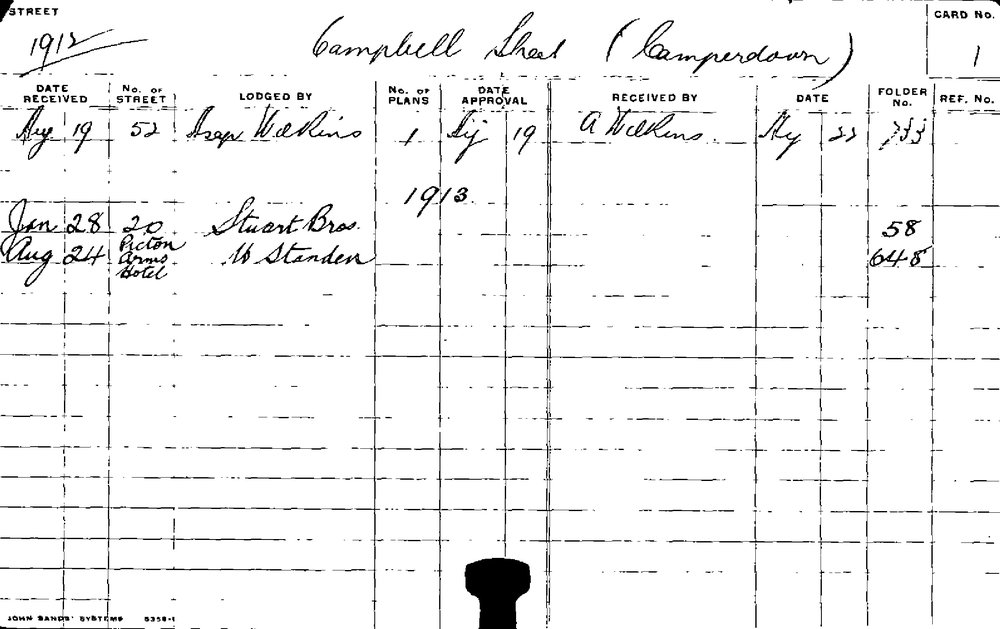 STREET
1912 Campbell Street (Camperdown)
CARD No.
1
DATE RECEIVED No. OF STREET LODGED BY No. OF PLANS DATE APPROVAL RECEIVED BY DATE FOLDER No. REF. No.
Aug 19 52 Wilkins 1 19 A Wilkins. 22
1913
Jan 28 20 Stuart Bros. 58
Aug 24 Picton Arms Hotel W Standen 648
JOHN SANDS' SYSTEMS 5358-1